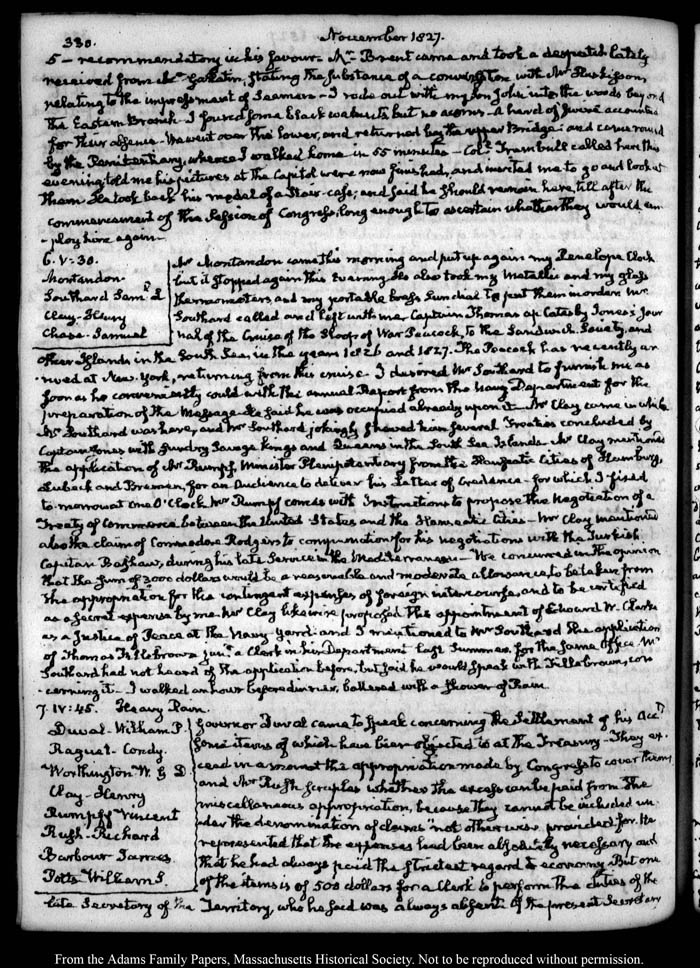 338.
November 1827.
5 — recommendatory in his favour. Mr. Brent came and took a despatch lately
received from Mr. Gallatin, stating the substance of a conversation with Mr. Huskisson,
relating to the impressment of Seamen — I rode out with my son John into the woods beyond
the Eastern Branch. I found some black walnuts but no acorns. A hard of June accounts
for their absence. We went over the lower, and returned by the upper Bridge: and came round
by the Penitentiary, whence I walked home in 55 minutes — Coll. Trumbull called here this
evening, told me his pictures at the Capitol were now finished, and invited me to go and look at
them. He took back his model of a Stair-case; and said he should remain here, till after the
commencement of the Session of Congress, long enough to ascertain whether they would em-
-ploy him again —
6. V: 30.
Montandon.
Southard Saml. L
Clay-Henry
Chase. Samuel
Mr. Montandon came this morning and put up again my Penelope Clock
but it stopped again this Evening. He also took my Metallic and my glass
thermometers and my portable brass Sun dial to put them in order. Mr.
Southard called and left with me Captain Thomas ap Catesby Jones's Jour-
nal of the Cruise of the Sloop of War Peacock, to the Sandwich, Society, and
other Islands in the South Sea, in the years 1826 and 1827. The Peacock has recently ar-
-rived at New-York, returning from this cruise. I desired Mr. Southard to furnish me as
soon as he conveniently could with the annual Report from the Navy Department for the
preparation of the Message. He said he was occupied already upon it — Mr. Clay came in while
Mr. Southard was here, and Mr. Southard jokingly shewed him several Treaties concluded by
Captain Jones with sundry Savage Kings and Queens in the South Sea Islands. Mr. Clay mentioned
the application of Mr. Rumpff, Minister Plenipotentiary from the Hanseatic Cities of Hamburg,
Lubeck and Bremen, for an Audience to deliver his Letter of Credence — for which I fixed
to-morrow at one O'Clock. Mr. Rumpff comes with Instructions to propose the Negotiation of a
Treaty of Commerce between the United States and the Hanseatic Cities — Mr. Clay mentioned
also the claim of Commodore Rodgers to compensation for his negotiations with the Turkish
Capitan Bashaw, during his late service in the Mediterranean — We concurred in the opinion
that the sum of 2000 dollars would be a reasonable and moderate allowance, to be taken from
the appropriation for the contingent expenses of foreign intercourse, and to be certified
as a secret expense by me. Mr. Clay likewise proposed the appointment of Edward W. Clarke
as a Justice of Peace at the Navy Yard: and I mentioned to Mr. Southard the application
of Thomas Fillebrown junr. a Clerk in his Department last Summer, for the same Office. Mr.
Southard had not heard of the application before, but said he would speak with Fillebrown, con-
-cerning it — I walked an hour before dinner, battered with a shower of Rain.
7. IV: 45. Heavy Rain.
Duval-William P.
Raguet-Condy.
Worthington W. G. D
Clay-Henry
Rumpff Vincent
Rush-Richard
Barbour James
Potts William S.
Governor Duval came to speak concerning the settlement of his Accts
some items of which have been objected to at the Treasury — They ex-
ceed in amount the appropriation made by Congress to cover them
and Mr. Rush scruples whether the excess can be paid from the
miscellaneous appropriation, because they cannot be included un-
-der the denomination of claims "not otherwise provided" for. He
represented that the expenses had been absolutely necessary and
that he had always paid the strictest regard to economy. But one
of the items is of 500 dollars for a Clerk to perform the duties of the
late Secretary of the Territory, who he said was always absent. Of the present Secretary
From the Adams Family Papers, Massachusetts Historical Society. Not to be reproduced without permission.